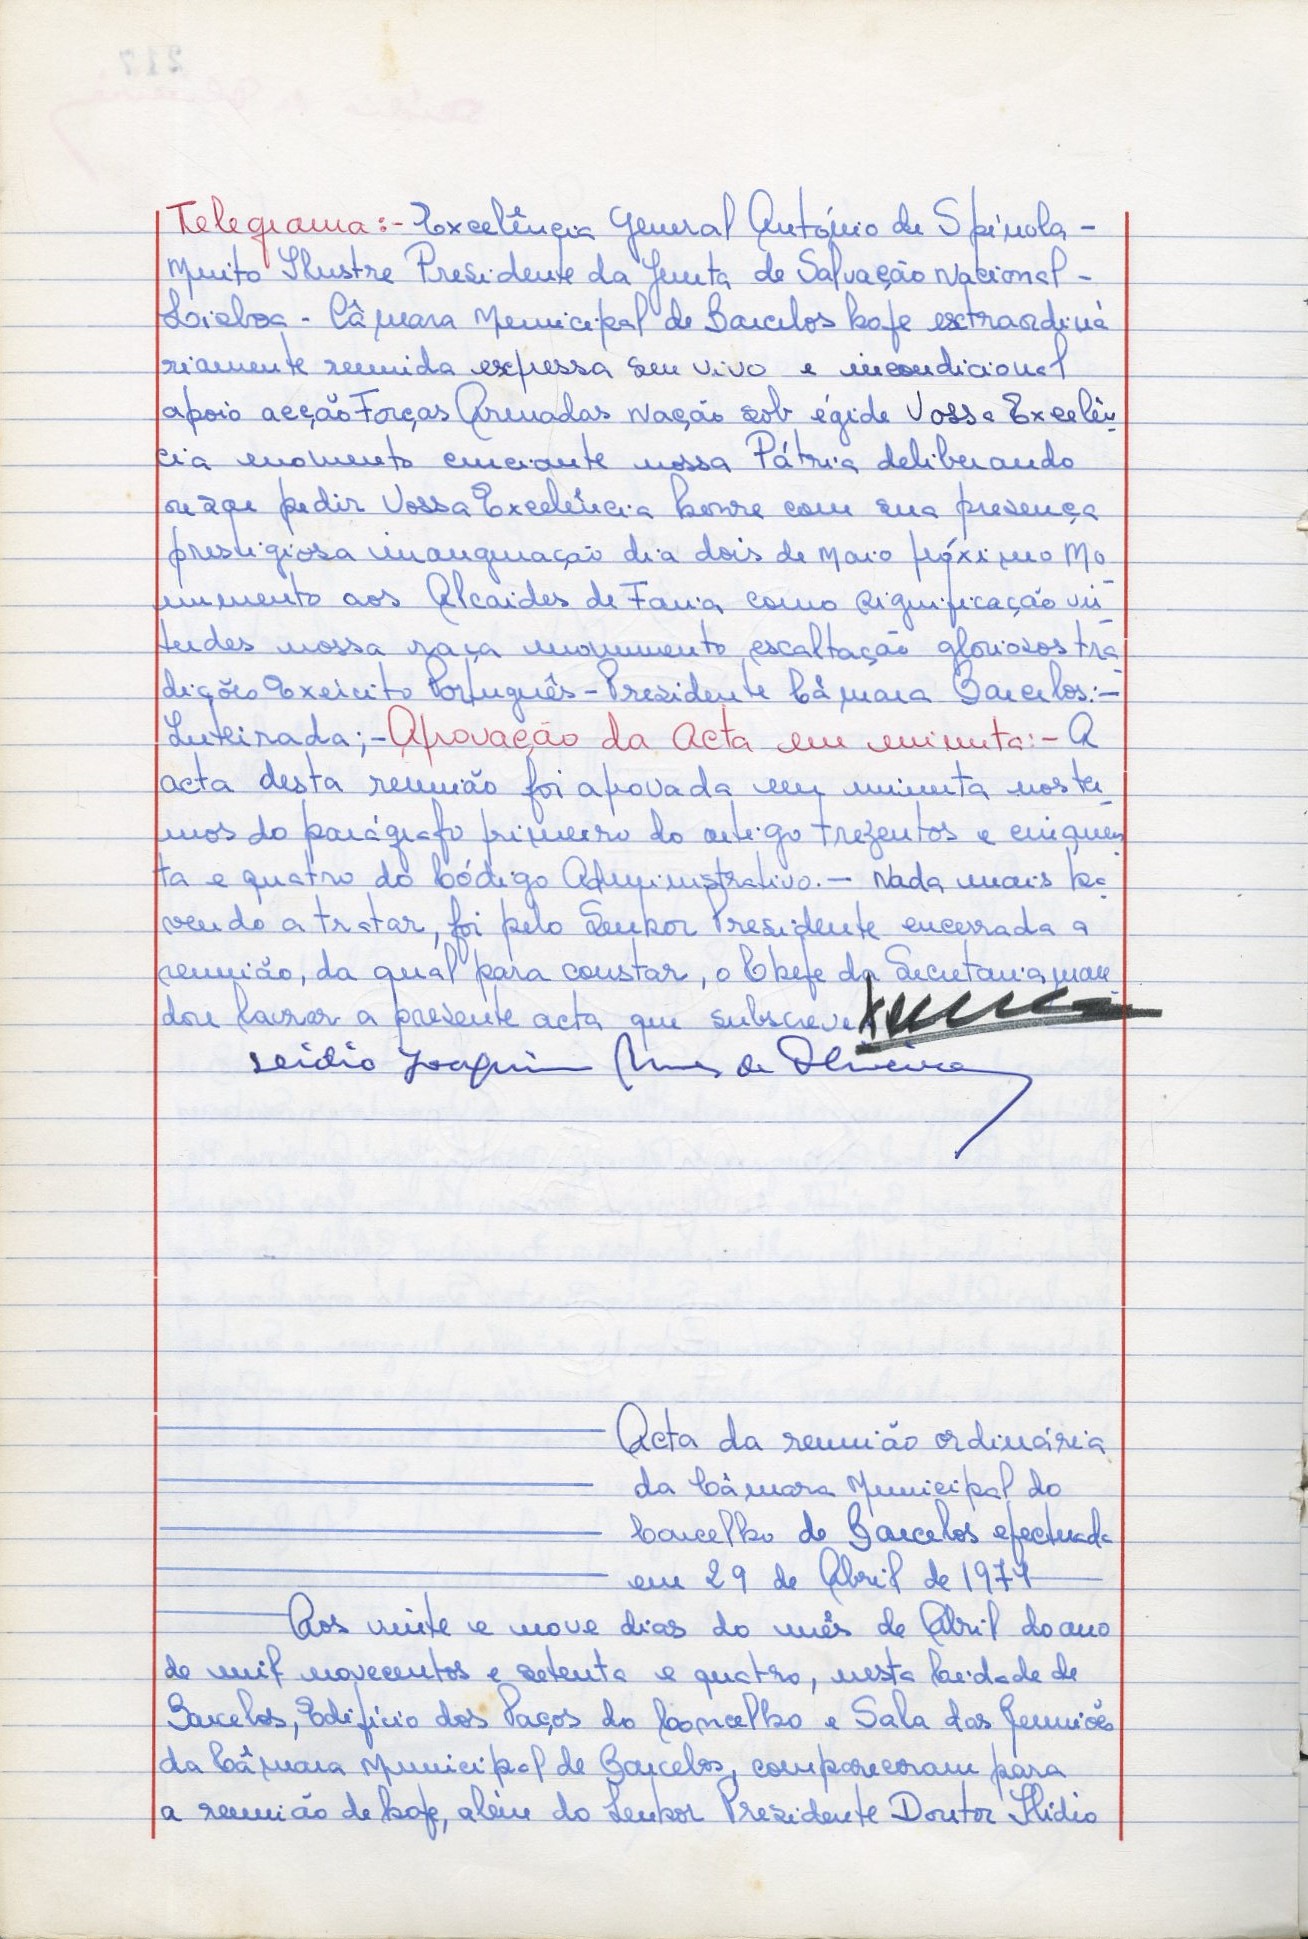 217
Telegrama:- Excelência General António de Spínola -
Muito Ilustre Presidente da Junta de Salvação Nacional -
Lisboa - Câmara Municipal de Barcelos hoje extraordiná
riamente reunida expressa seu vivo e incondicional
apoio acção Forças Armadas Nação sob égide Vossa Excelên-
cia momento cruciante nossa Pátria deliberando
pedir Vossa Excelência honre com sua presença
prestigiosa inauguração dia dois de Maio próximo Mo-
numento aos Alcaides de Faria como significação vir-
tudes nossa raça monumento escaltação gloriosos tra-
dições Exército Português - Presidente Câmara Barcelos:-
Inteirada;- Aprovação da Acta em minuta:- A
acta desta reunião foi aprovada em minuta nos ter-
mos do parágrafo primeiro do artigo trezentos e cinquen-
ta e quatro do Código Administrativo.- Nada mais ha-
vendo a tratar, foi pelo Senhor Presidente encerrada a
reunião, da qual para constar, o Chefe da Secretaria, man-
dou lavrar a presente acta que subscreve
Ilídio Joaquim Nunes de Oliveira
Acta da reunião ordinária
da Câmara Municipal do
Concelho de Barcelos efectuada
em 29 de Abril de 1974
Aos vinte e nove dias do mês de Abril do ano
de mil novecentos e setenta e quatro, nesta Cidade de
Barcelos, Edifício dos Paços do Concelho e Sala das Reuniões
da Câmara Municipal de Barcelos, compareceram para
a reunião de hoje, além do Senhor Presidente Doutor Ilídio